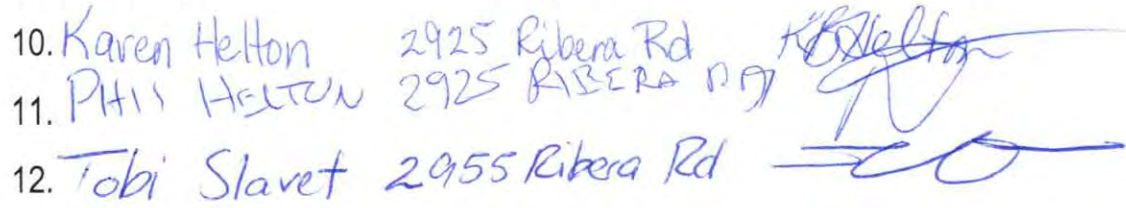 10. Karen Helton 2925 Ribera Rd KBHelton
11. PHIL HELTON 2925 RIBERA RD
12. Tobi Slavet 2955 Ribera Rd